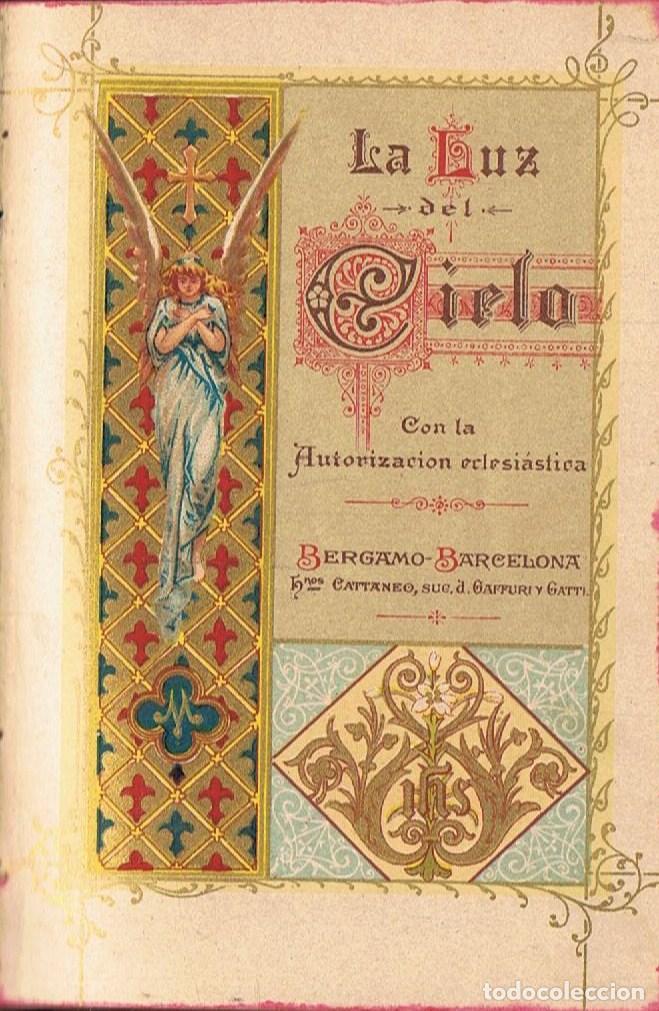 La Luz
del
Cielo
Con la
Autorizacion eclesiástica
BERGAMO-BARCELONA
Hnos CATTANEO, SUC. d. GAFFURI Y GATTI.
M
IHS
todocoleccion